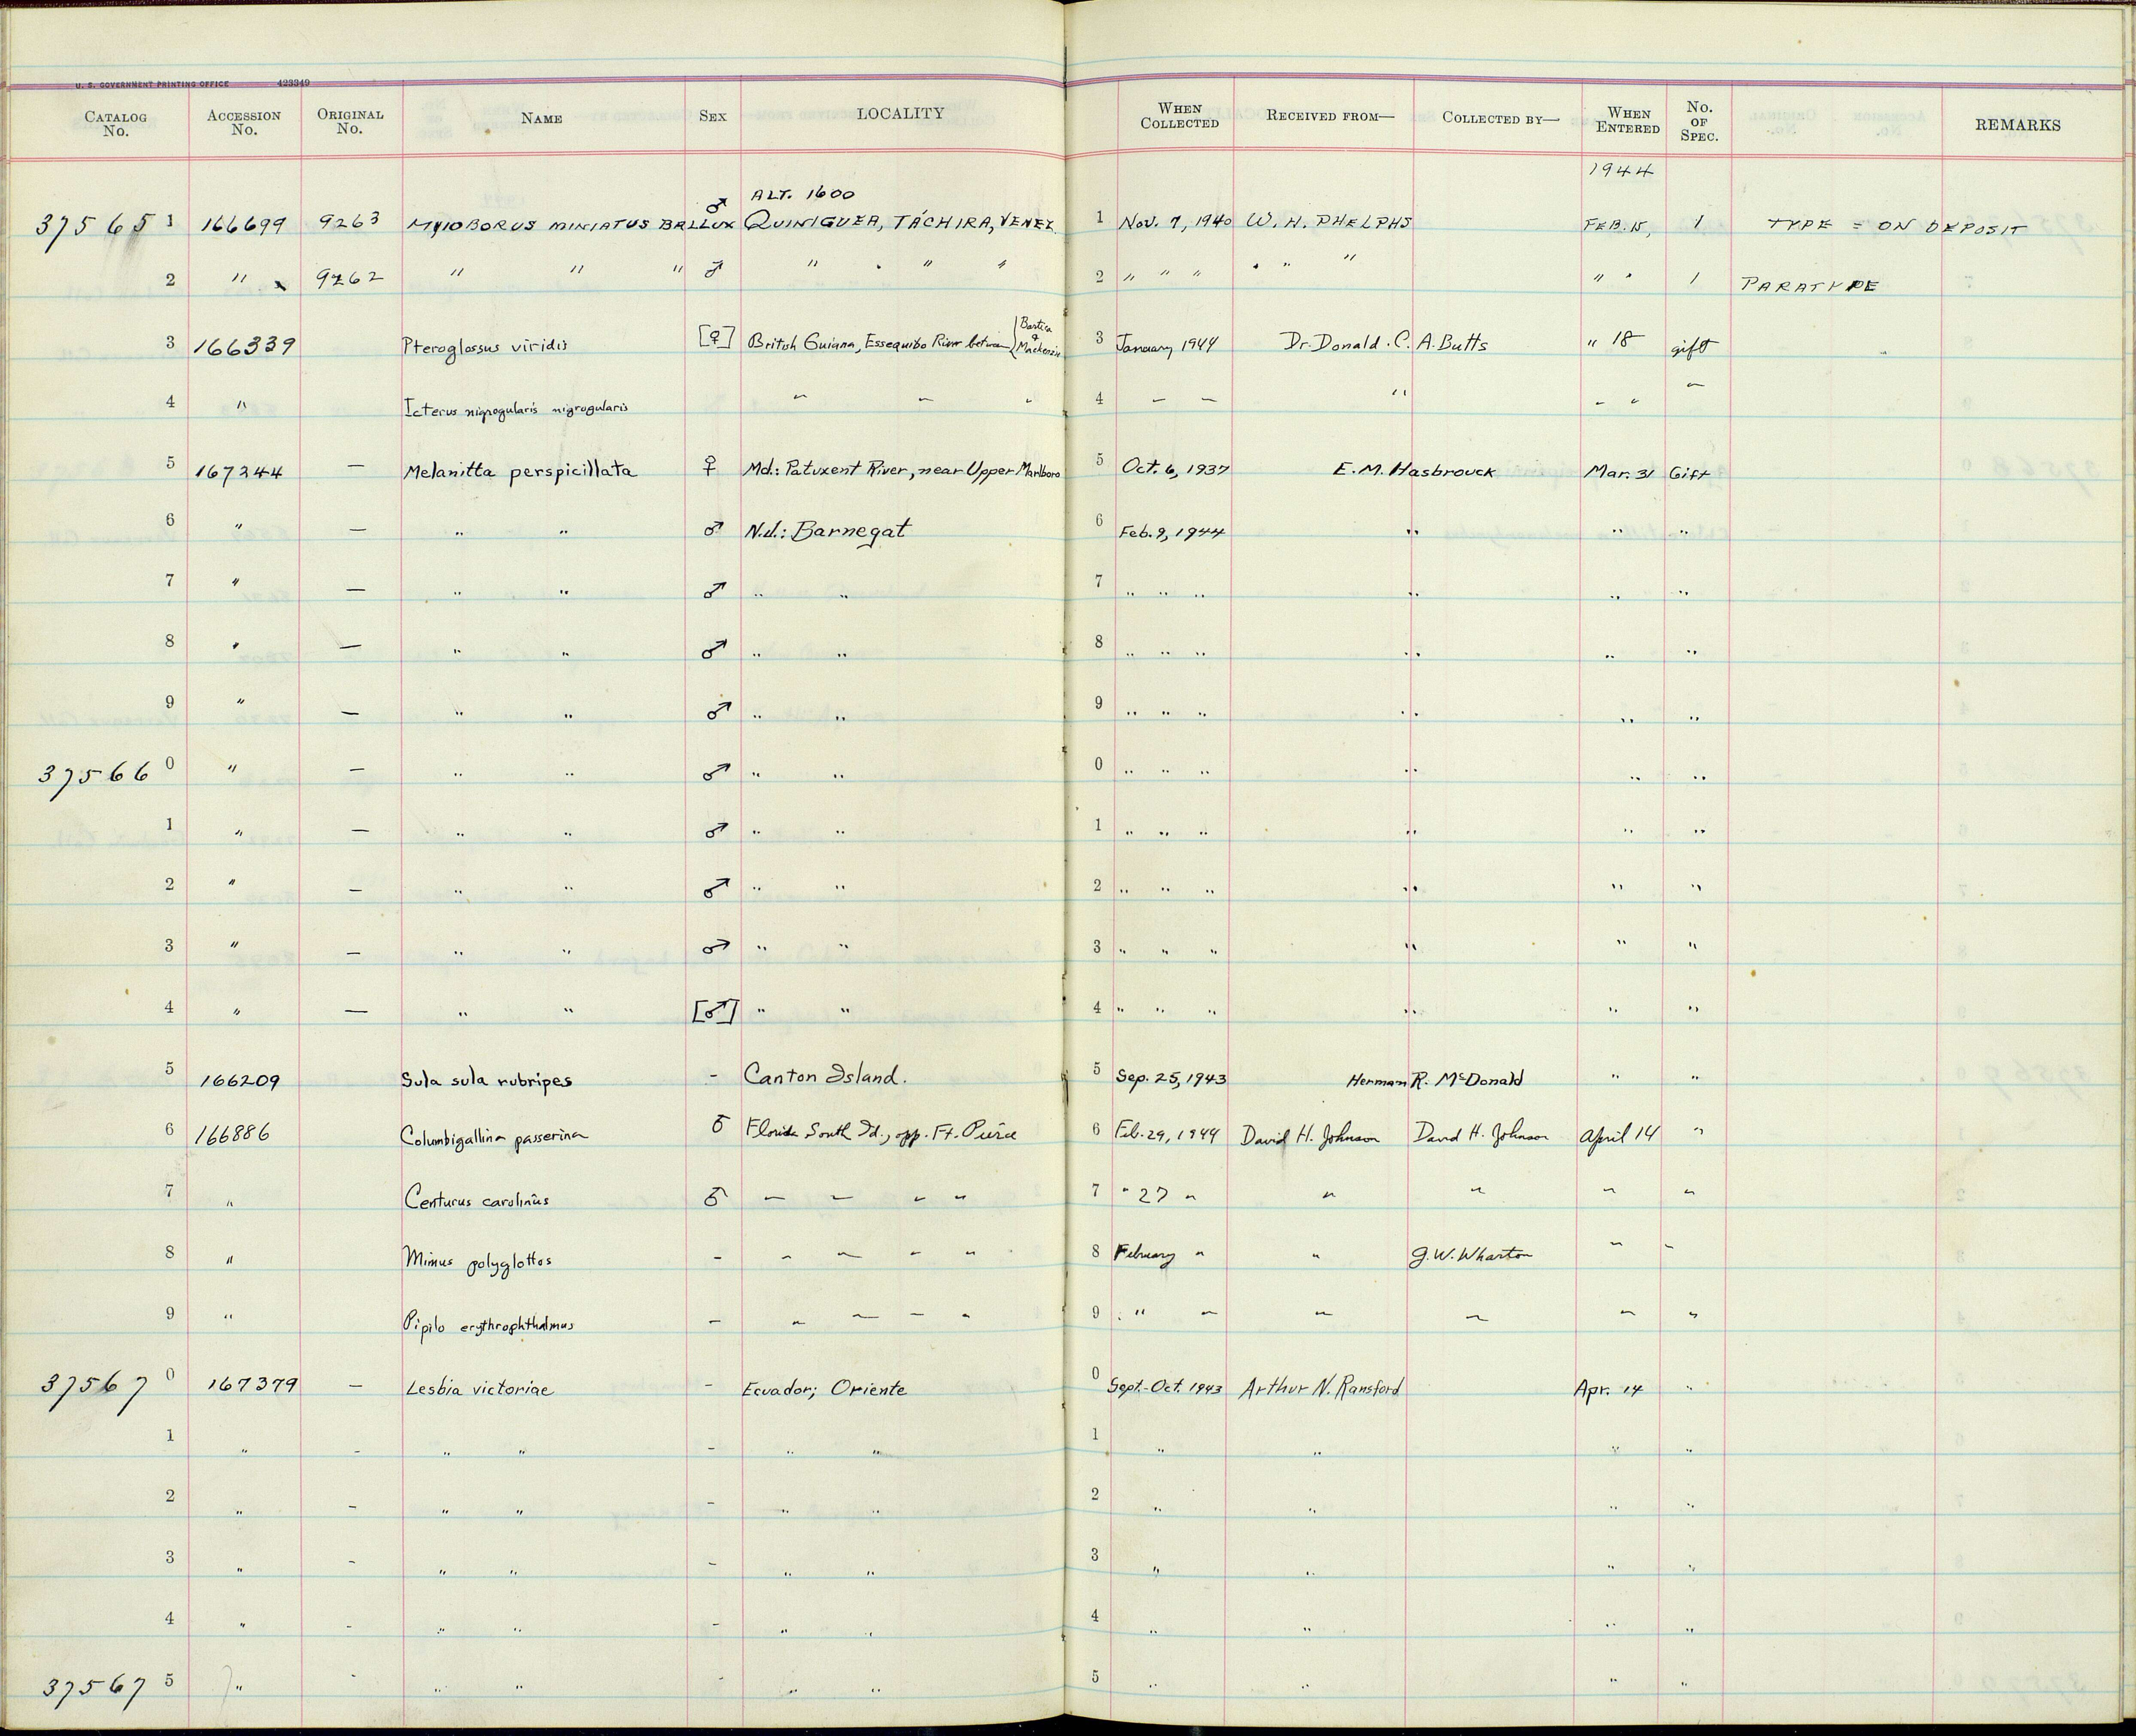 U. S. GOVERNMENT PRINTING OFFICE 423349
CATALOG No. ACCESSION No. ORIGINAL No. NAME SEX LOCALITY WHEN COLLECTED RECEIVED FROM— COLLECTED BY— WHEN ENTERED No. OF SPEC. REMARKS
1944
ALT. 1600
37565 1 166699 9263 MYIOBORUS MINIATUS BALLUX ♂ QUINIGUEA, TÁCHIRA, VENEZ. 1 NOV. 7, 1940 W. H. PHELPHS FEB. 15, 1 TYPE = ON DEPOSIT
2 " 9262 " " " ♂ " " " 2 " " " " " " " " 1 PARATYPE
3 166339 Pteroglossus viridis [♀] British Guiana, Essequibo River between { Bartica & Mackenzie 3 January 1944 Dr. Donald. C. A. Butts " 18 gift
4 " Icterus nigrogularis nigrogularis " " " 4 " " " " " "
5 167244 — Melanitta perspicillata ♀ Md.: Patuxent River, near Upper Marlboro 5 Oct. 6, 1937 E. M. Hasbrouck Mar. 31 Gift
6 " — " " ♂ N.J.: Barnegat 6 Feb. 9, 1944 " " "
7 " — " " ♂ " " 7 " " " " " "
8 " — " " ♂ " " 8 " " " " " "
9 " — " " ♂ " " 9 " " " " " "
37566 0 " — " " ♂ " " 0 " " " " " "
1 " — " " ♂ " " 1 " " " " " "
2 " — " " ♂ " " 2 " " " " " "
3 " — " " ♂ " " 3 " " " " " "
4 " — " " [♂] " " 4 " " " " " "
5 166209 Sula sula rubripes - Canton Island. 5 Sep. 25, 1943 Herman R. McDonald " "
6 166886 Columbigallina passerina ♂ Florida South Id., opp. Ft. Pierce 6 Feb. 29, 1944 David H. Johnson David H. Johnson April 14 "
7 " Centurus carolinus ♂ " " " " 7 " 27 " " " " "
8 " Mimus polyglottos - " " " " 8 February " " G. W. Wharton " "
9 " Pipilo erythrophthalmus - " " " " 9 " " " " " "
37567 0 167379 — Lesbia victoriae - Ecuador; Oriente 0 Sept.-Oct. 1943 Arthur N. Ransford Apr. 14 "
1 " - " " - " " 1 " " " "
2 " - " " - " " 2 " " " "
3 " - " " - " " 3 " " " "
4 " - " " - " " 4 " " " "
37567 5 " - " " - " " 5 " " " "